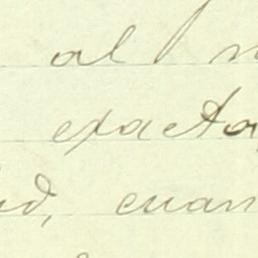 al
exacto
ud, cuan